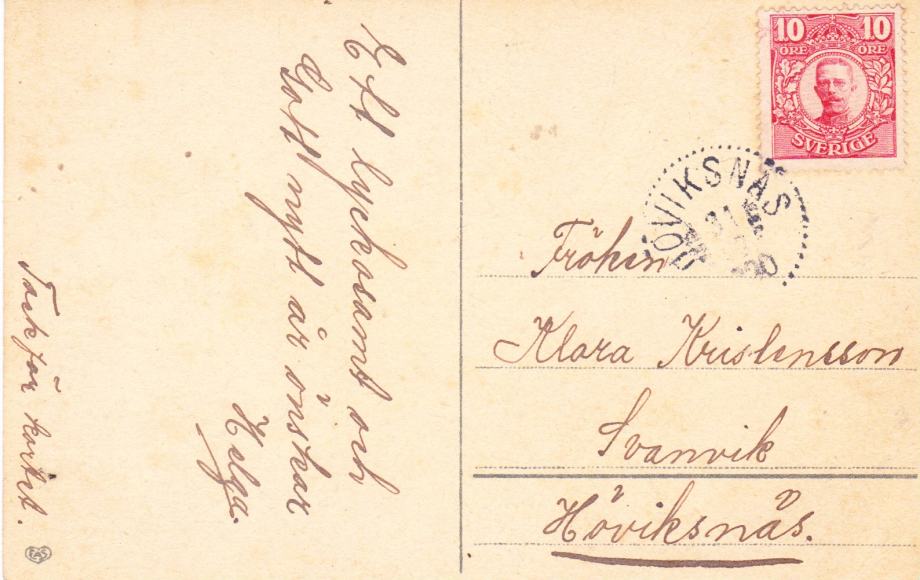 Ett lyckosamt och
Gott nytt år önskar
Helga.
Tack för kortet.
EAS
10 10
ÖRE ÖRE
SVERIGE
HÖVIKSNÄS
31
20
Fröken
Klara Kristensson
Svanvik
Höviksnäs.